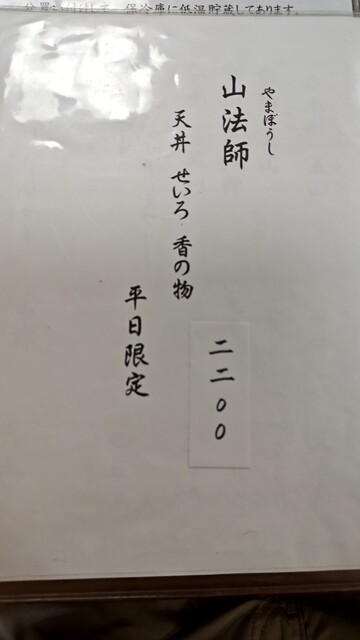 保冷庫に低温貯蔵してあります。
やまぼうし
山法師
天丼 せいろ 香の物
二二〇〇
平日限定